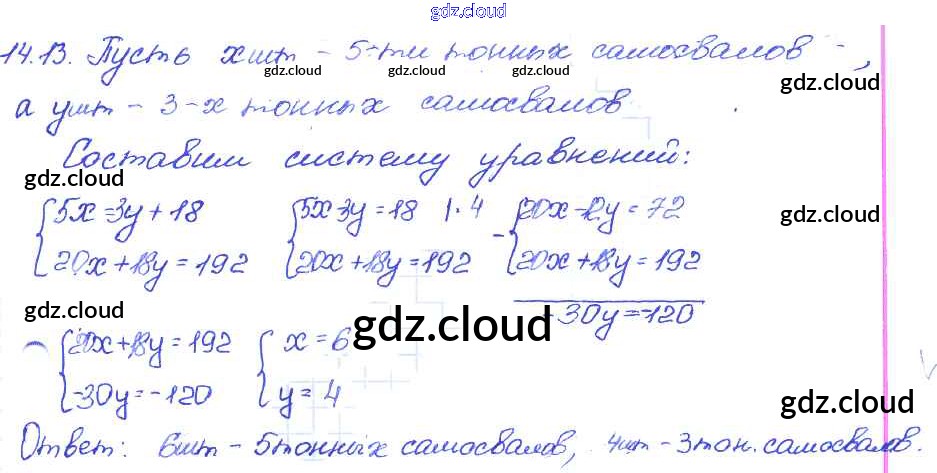 gdz.cloud
gdz.cloud
14.13. Пусть x шт - 5-ти тонных самосвалов -,
gdz.cloud gdz.cloud gdz.cloud
а y шт - 3-х тонных самосвалов
Составим систему уравнений:
gdz.cloud
5x=3y+18 5x-3y=18 |·4 20x-12y=72
gdz.cloud
20x+18y=192 20x+18y=192 - 20x+18y=192
gdz.cloud
-30y=-120
gdz.cloud
20x+18y=192 x=6
-30y=-120 y=4
gdz.cloud
Ответ: 6шт - 5тонных самосвалов, 4шт - 3тон. самосвалов.